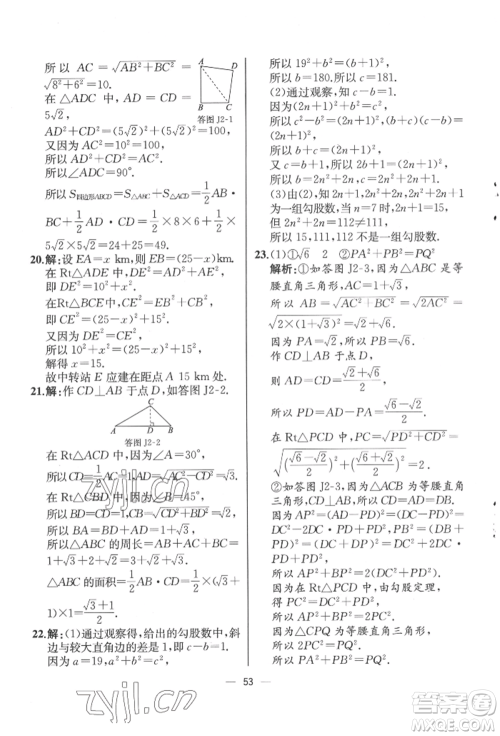 所以 AC=√(AB²+BC²)=
√(8²+6²)=10.
在△ADC 中，AD=CD=
5√2，
AD²+CD²=(5√2)²+(5√2)²=100，
又因为 AC²=10²=100，
所以 AD²+CD²=AC².
所以∠ADC=90°.
所以S四边形ABCD=S△ABC+S△ACD=1/2 AB·
BC+1/2 AD·CD=1/2×8×6+1/2×5√2×
5√2=24+25=49.
A
D
B
C
答图 J2-1
20.解：设 EA=x km，则 EB=(25-x)km.
在 Rt△ADE 中，DE²=AD²+AE²，
即 DE²=10²+x².
在 Rt△BCE 中，CE²=CB²+BE²，
即 CE²=(25-x)²+15².
又因为 DE=CE，所以 DE²=CE².
所以 10²+x²=(25-x)²+15².
解得 x=15.
故中转站 E 应建在距点 A 15 km处.
21.解：作 CD⊥AB 于点 D，如答图 J2-2.
C
A
D
B
答图 J2-2
在 Rt△ADC 中，因为∠A=30°，
在 Rt△CBD 中，因为∠B=45°，
所以 BA=BD+AD=1+√3.
所以△ABC 的周长=AC+BC+AB=2+
√2+1+√3=3+√2+√3.
△ABC 的面积=1/2 AB·CD=1/2×(√3
+1)×1=(√3+1)/2.
22.解：(1)通过观察得，给出的勾股数中，斜
边与较大直角边的差是 1，即 c-b=1.
因为 a=19，a²+b²=c²，
所以 19²+b²=(b+1)².
所以 b=180. 所以 c=181.
(2)通过观察，知 c-b=1.
因为(2n+1)²+b²=c²，
所以 c²-b²=(2n+1)².
所以(b+c)(c-b)=(2n+1)².
所以 b+c=(2n+1)².
又 c=b+1，
所以 2b+1=(2n+1)².
所以 b=2n²+2n，c=2n²+2n+1.
(3)由(2)，知 2n+1，2n²+2n，2n²+2n+1
为一组勾股数.
当 n=7 时，2n+1=15，
2n²+2n=112≠111.
所以 15，111，112 不是一组勾股数.
23.(1)①√6 2 ②PA²+PB²=PQ²
解析：①如答图 J2-3，因为△ABC 是等
腰直角三角形，
所以 AB=√(AC²+BC²)=√(2AC²)=
√(2×(1+√3)²)=√6+√2.
因为 PA=√2，所以 PB=√6.
作 CD⊥AB 于点 D，
则 AD=CD=(√6+√2)/2.
所以 PD=AD-PA=(√6-√2)/2.
在 Rt△PCD 中，PC=√(PD²+CD²)=
√(((√6-√2)/2)²+((√6+√2)/2)²)=2.
②如答图 J2-3，因为△ACB 为等腰直角
三角形，CD⊥AB，所以 CD=AD=DB.
因为 AP²=(AD-PD)²=(CD-PD)²=
CD²-2CD·PD+PD²，
PB²=(DB+PD)²=(CD+PD)²=
CD²+2CD·PD+PD²，
所以 AP²+BP²=2CD²+2PD².
因为在 Rt△PCD 中，由勾股定理，
得 PC²=CD²+PD²，
所以 AP²+BP²=2PC².
因为△CPQ 为等腰直角三角形，
所以 2PC²=PQ².
所以 AP²+BP²=PQ².
53